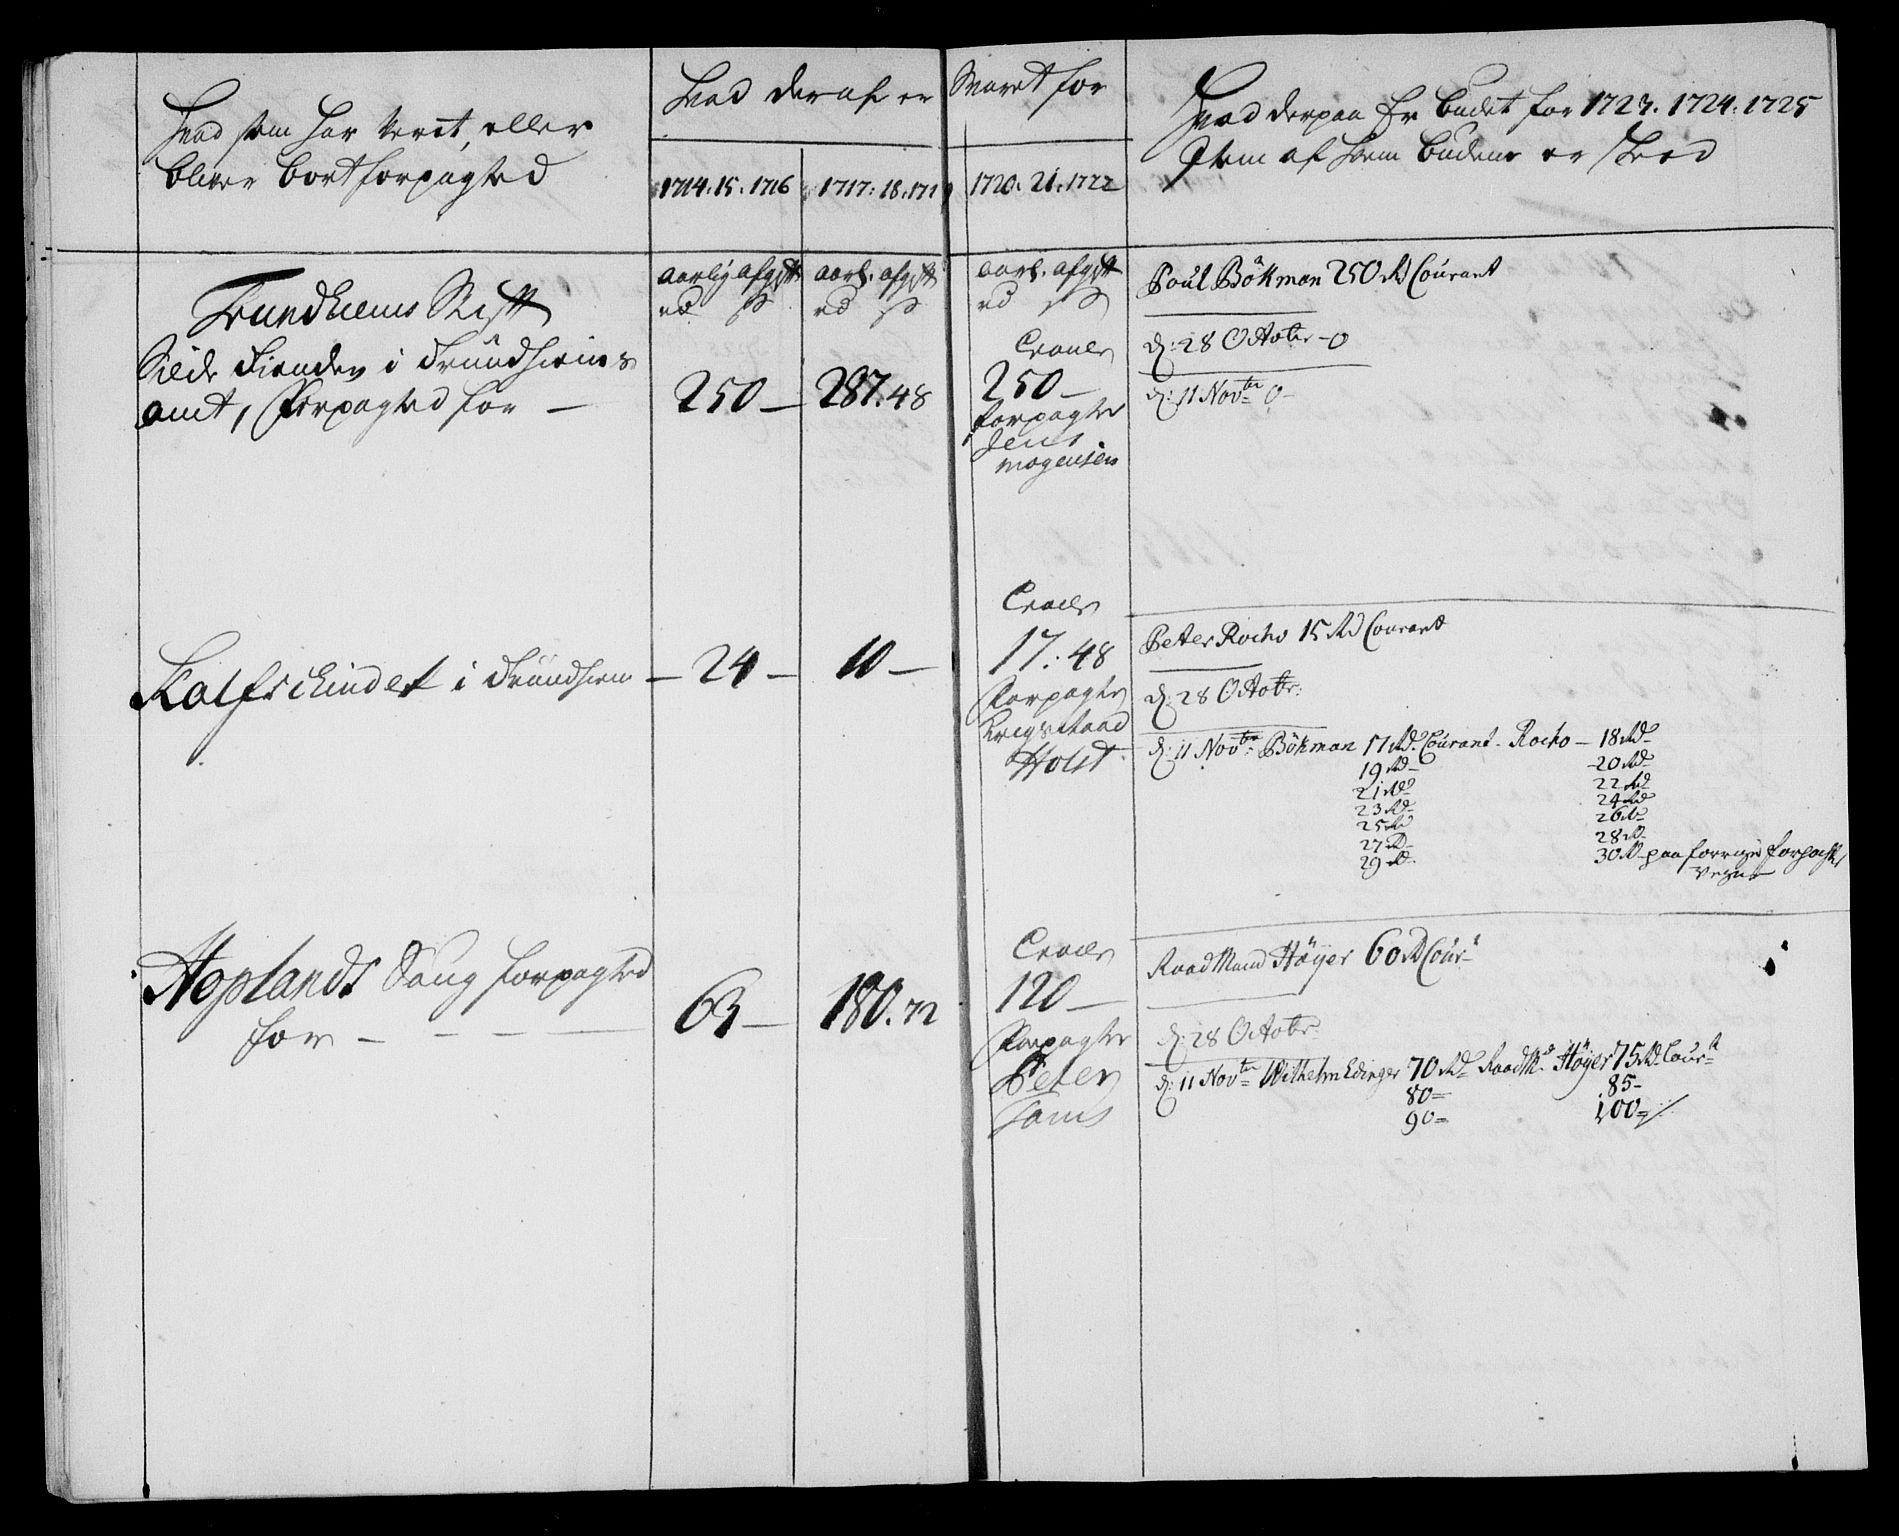 Hvad som har veret, eller
bliver bortforpagted
Hvad deraf er Svaret for
1714. 15. 1716
1717: 18. 1719
1720. 21. 1722
Hvad derpaa Er budet for 1723. 1724. 1725
Item af hvem budene er skeed
Trundhiems Stift
Silde Tienden i Trundhiems
amt, Forpagted for —
aarlig afgift
rd ß
250 —
aarl. afgift
rd ß
287. 48
aarl. afgift
rd ß
Croner
250 —
Forpagter
Jens
Mogensen
Poul Bökman 250 Rd Courant
d: 28 Octobr. — 0
d: 11 Novbr 0 —
Kalfschindet i Trundhiem — 24 —
10 —
Croner
17: 48
Forpagter
Krigsraad
Holst
Peter Rocho 15 Rd Courant
d: 28 Octobr:
d: 11 Novbr: Bökman 17 Rd. Courant - Rocho — 18 Rd
19 Rd 20 Rd
21 Rd 22 Rd
23 Rd 24 Rd
25 Rd 26 Rd
27 Rd 28 Rd
29 Rd 30 Rd paa forrige forpagters
vegne
Hoplands Saug forpagted
for — — — —
63 —
180. 72
Croner
120 —
Forpagter
Peter
Tams
Raadmand Höyer 60 Rd Cour.t
d: 28 Octobr.
d: 11 Novbr Wilhelm Edinger 70 Rd Raadm.d Höyer 75 Rd. Cour.t
80 = 85 -
90 = 100 =